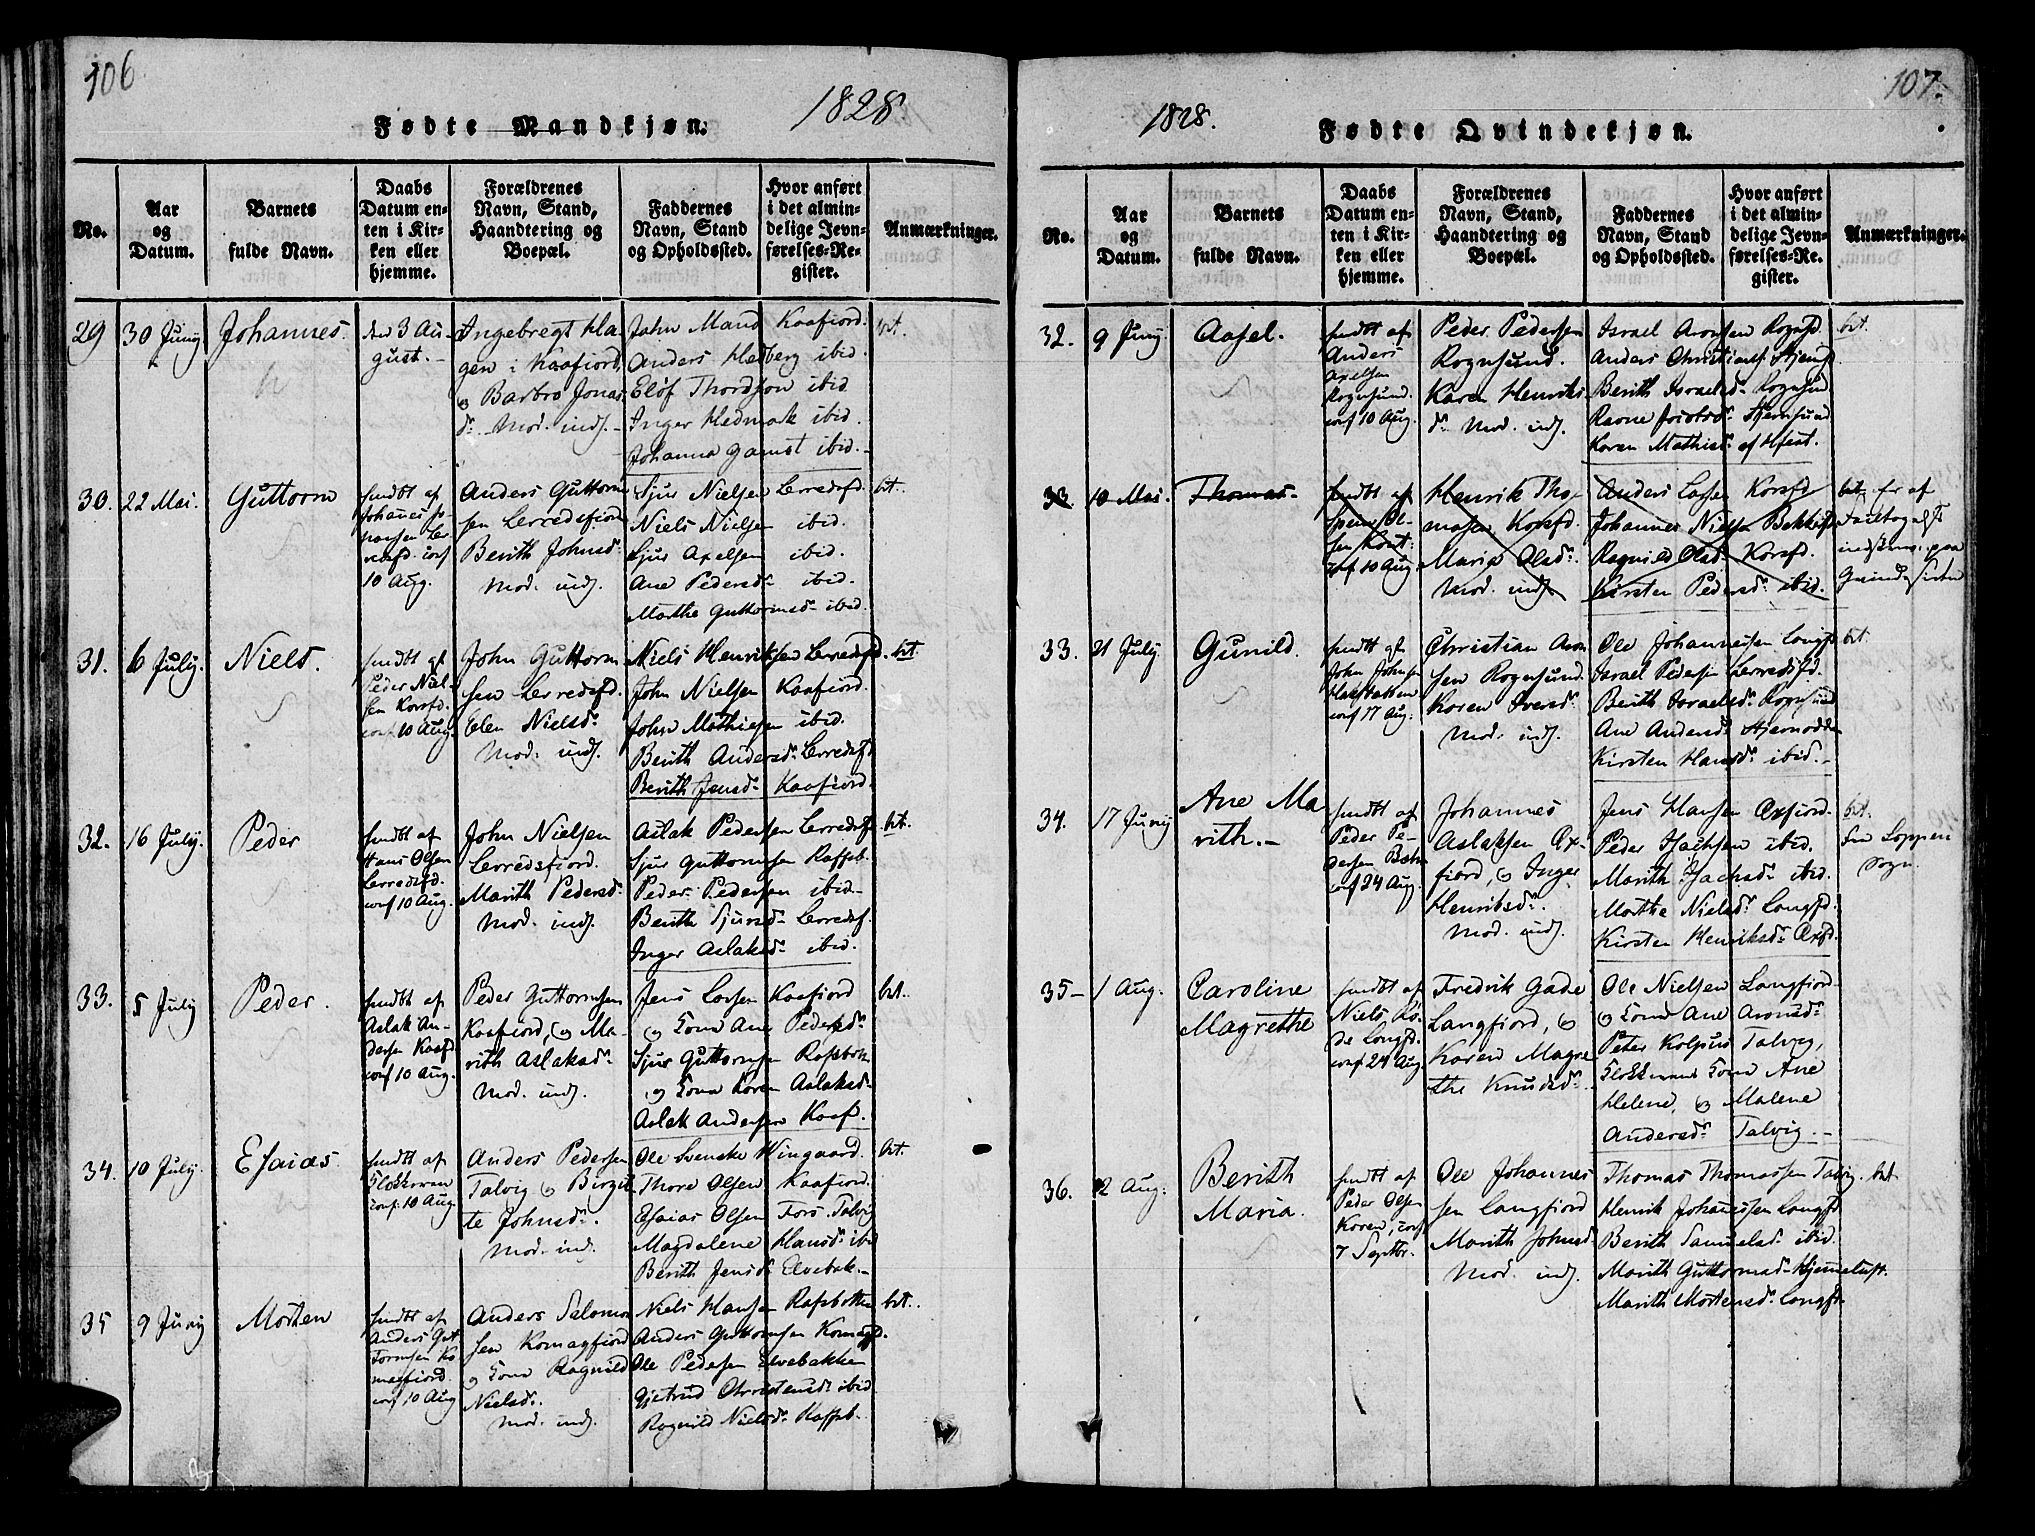 106.
Fødte Mandkjøn.
1828.
No.
Aar
og
Datum.
Barnets
fulde Navn.
Daabs
Datum en-
ten i Kir-
ken eller
hjemme.
Forældrenes
Navn, Stand,
Haandtering og
Boepæl.
Faddernes
Navn, Stand
og Opholdssted.
Hvor anført
i det almin-
delige Jevn-
førelses-Re-
gister.
Anmærkninger.
29
30 Juny
Johannes.
den 3 Au-
gust.-
Ingebregt Ha-
gen i Kaafiord,
Barbro Jonas
dr. Mod. indf.
John Mand Kaafiord.
Anders Hedberg ibid.
Elof Thordson ibid
Inger Hedmark ibid.
Johanna Gamst ibid.
bet.
30.
22 Mai.
Guttorm
hmdbt af
Johanes Jo-
hansen Ler-
redsfd. conf
10 Aug.
Anders Guttorm
sen Lerredsfiord
Berith Johnsdr.
Mod. indf.
Sjur Nielsen Lerredsfd.
Niels Nielsen ibid.
Sjur Axelsen ibid.
Ane Pedersdr. ibid.
Marthe Guttormsdr. ibid.
bet.
31.
6 July.
Niels.
hmdbt af
Peder Niel-
sen Korsfd.
conf 10 Aug.
John Guttorm
sen Lerredsfd.
Elen Nielsdr.
Mod. indf.
Niels Henriksen Lerredsfd.
John Nielsen Kaafiord.
John Mathiesen ibid.
Berith Andersdr. Lerredsfd
Berith Jensdr. Kaafiord.
bet.
32.
16 July.
Peder
hmdbt af
Hans Olsen
Lerredsfd.
conf 10 Aug.
John Nielsen
Lerredsfiord.
Marith Pedersdr.
Mod. indf.
Aslak Pedersen Lerredsf.
Sjur Guttormsen Rafsb.
Peder Pedersen ibid.
Berith Sjursdr. Lerredsf.
Inger Aslaksdr. ibid.
bet.
33.
5 July
Peder.
hmdbt af
Aslak An-
dersen Kaafd.
conf 10 Aug.
Peder Guttormsen
Kaafiord, Ma-
rith Aslaksdr.
Mod. indf.
Jens Larsen Kaafiord
Kona Ane Pedersdr.
Sjur Guttormsen Rafsbotn
Kona Karen Aslaksdr.
Aslak Andersen Kaaf.
bet.
34.
10 July.
Esaias.
hmdbt af
Klokkeren
conf. 10 Aug.
Anders Pedersen
Talvig Birgit-
te Johnsdr.
Mod. ind.
Ole Svenske Wingaard.
Thore Olsen Kaafiord.
Esaias Olsen Fors. Talvig
Magdalene Hansdr. ibid
Berith Jensdr. Elvebak.
bet.
35
9 Juny
Morten
hmdbt af
Anders Gut
tormsen Ko
magfiord.
conf 10 Aug
Anders Salomon
sen Komagfiord
Kona Ragnild
Nielsdr.
Mod. indf.
Niels Hansen Rafsbotten
Anders Guttormsen Komagfd.
Ole Pedersen Elvebakken
Gjetrud Christensdr. ibid
Ragnild Nielsdr. Rafsb.
bet.
107.
1828.
Fødte Qvindekjøn.
No.
Aar
og
Datum.
Barnets
fulde Navn.
Daabs
Datum en-
ten i Kir-
ken eller
hjemme.
Forældrenes
Navn, Stand,
Haandtering og
Boepæl.
Faddernes
Navn, Stand
og Opholdssted.
Hvor anført
i det almin-
delige Jevn-
førelses-Re-
gister.
Anmærkninger.
32.
9 Juny.
Aasel.
hmdbt af
Anders
Axelsen
Rognsund.
conf 10 Aug.
Peder Pedersen
Rognsund.
Karen Henriks
dr. Mod. indf.
Israel Aronsen Rognsfd.
Anders Christians. Stjernsf
Berith Israelsdr. Rognsund
Ravne Jacobsdr. Stjernsund
Karen Mathisdr. af Hfest.
bet.
33
10 Mai.
Thomas.
hmdbt af
Spens Ol-
sen Kont:
conf 10 Aug
Henrik Tho-
masen Korsfd.
Maria Olsdr.
Mod. indf.
Anders Larsen Korsfd
Johannes Nielsen Bekkefd
Ragnild Olsdr. Korsfd.
Kirsten Pedersdr. ibid.
bet.
33.
21 July
Gunild.
hmdbt af
John Johnsen
Hakstabben
conf 17 Aug:
Christian Aron
sen Rognsund.
Karen Iversdr.
Mod. indf.
Ole Johannessen Langfd
Israel Pedersen Lerredsfd.
Berith Israelsdr. Rognsund
Ane Andersdr. Stjernodden
Kirsten Hansdr. ibid.
bet.
34.
17 Juny
Ane Ma
rith.-
hmdbt af
Peder Pe-
dersen Botn
conf 24 Aug.
Johannes
Aslaksen Ox-
fiord, Inger
Henriksdr.
Mod. indf.
Jens Hansen Oxfiord.
Peder Isachsen ibid.
Marith Isachsdr. ibid.
Marthe Nielsdr. Langfd.
Kirsten Henriksdr. Oxfd.
bet.
fra Loppen
Sogn.
35-
1 Aug.
Caroline
Magrethe
hmdbt af
Niels Ga-
de Langfd.
conf. 24 Aug.
Fredrik Gade
Langfiord,
Karen Magre
the Knudsdr.
Ole Nielsen Langfiord.
Kona Ane Aronsdr.
Peter Kolpus Talvig,
Klokkerens Kona Ane
Helene, Malene
Andersdr. Talvig.-
36.
12 Aug.
Berith
Maria.
hmdbt af
Peder Olsen
Koren, conf
7 Septbr.
Ole Johannes
sen Langfiord
Marith Johnsdr
Mod. indf.
Thomas Thomassen Talvig.
Henrik Johannessen Langfd
Berith Samuelsdr. ibid.
Marith Guttormsdr. Hjemeluft.
Marith Mortensdr. Langfd.
bet